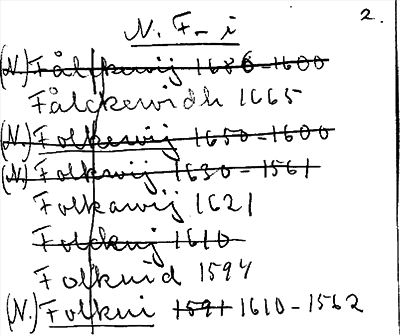 2.
N. F-i
(N.) Fålckewij 1686-1600
Fålckewidh 1665
(N.) Folkewij 1650-1600
(N.) Folkwij 1630-1561
Folkawij 1621
Foldkuj 1610
Folkuid 1594
(N.) Folkui 1591 1610-1562